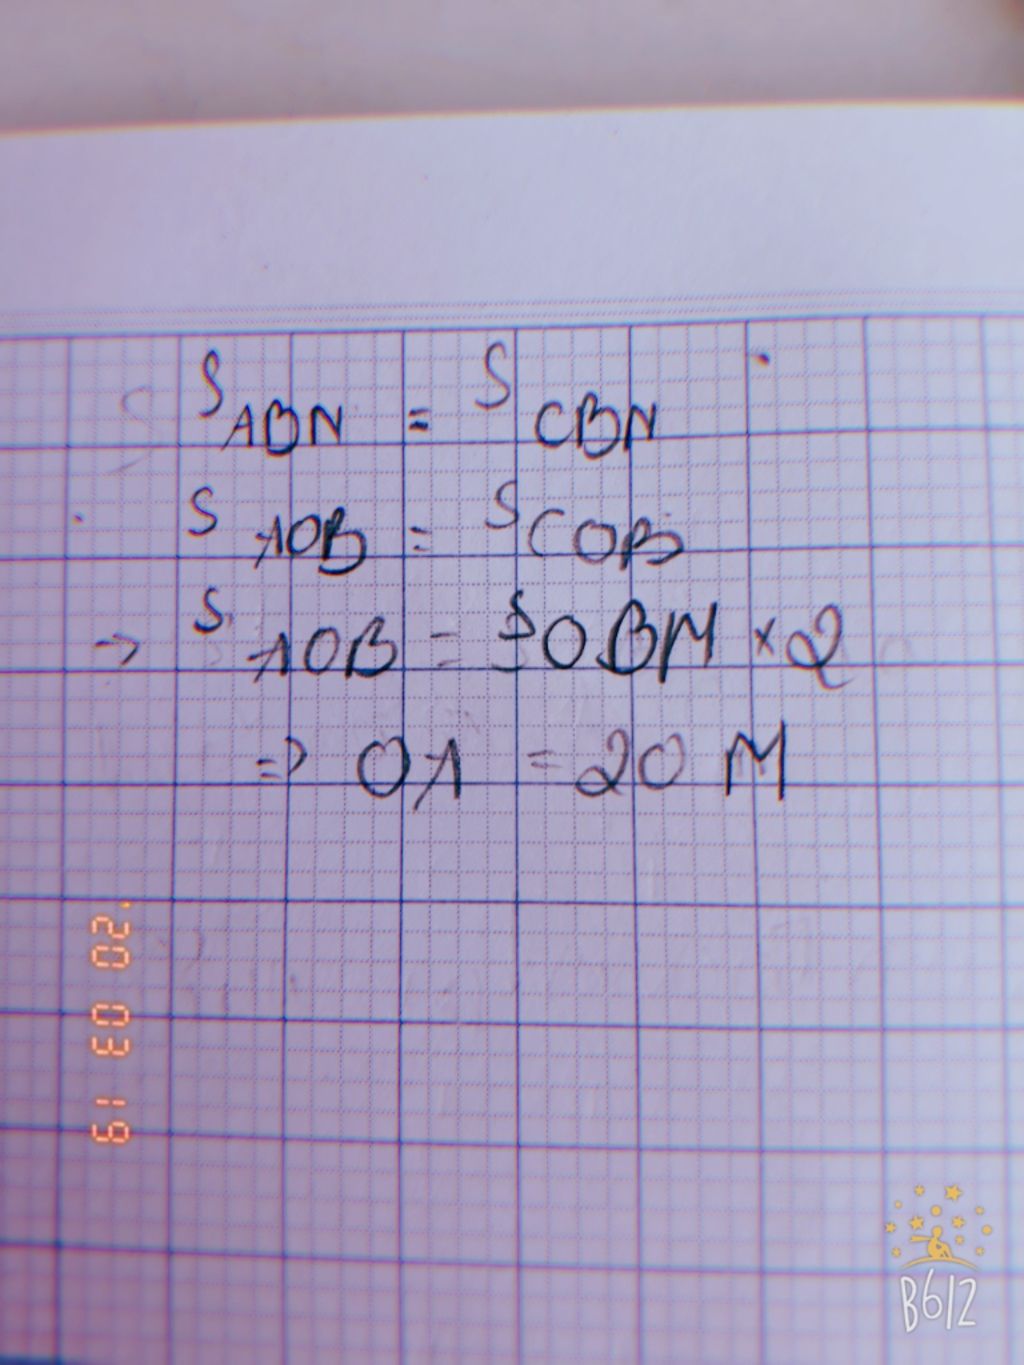 S ABN = S CBN
S AOB = S COB
=> S AOB = S OBM × 2
=> OA = 2O M
'20 03 19
B612